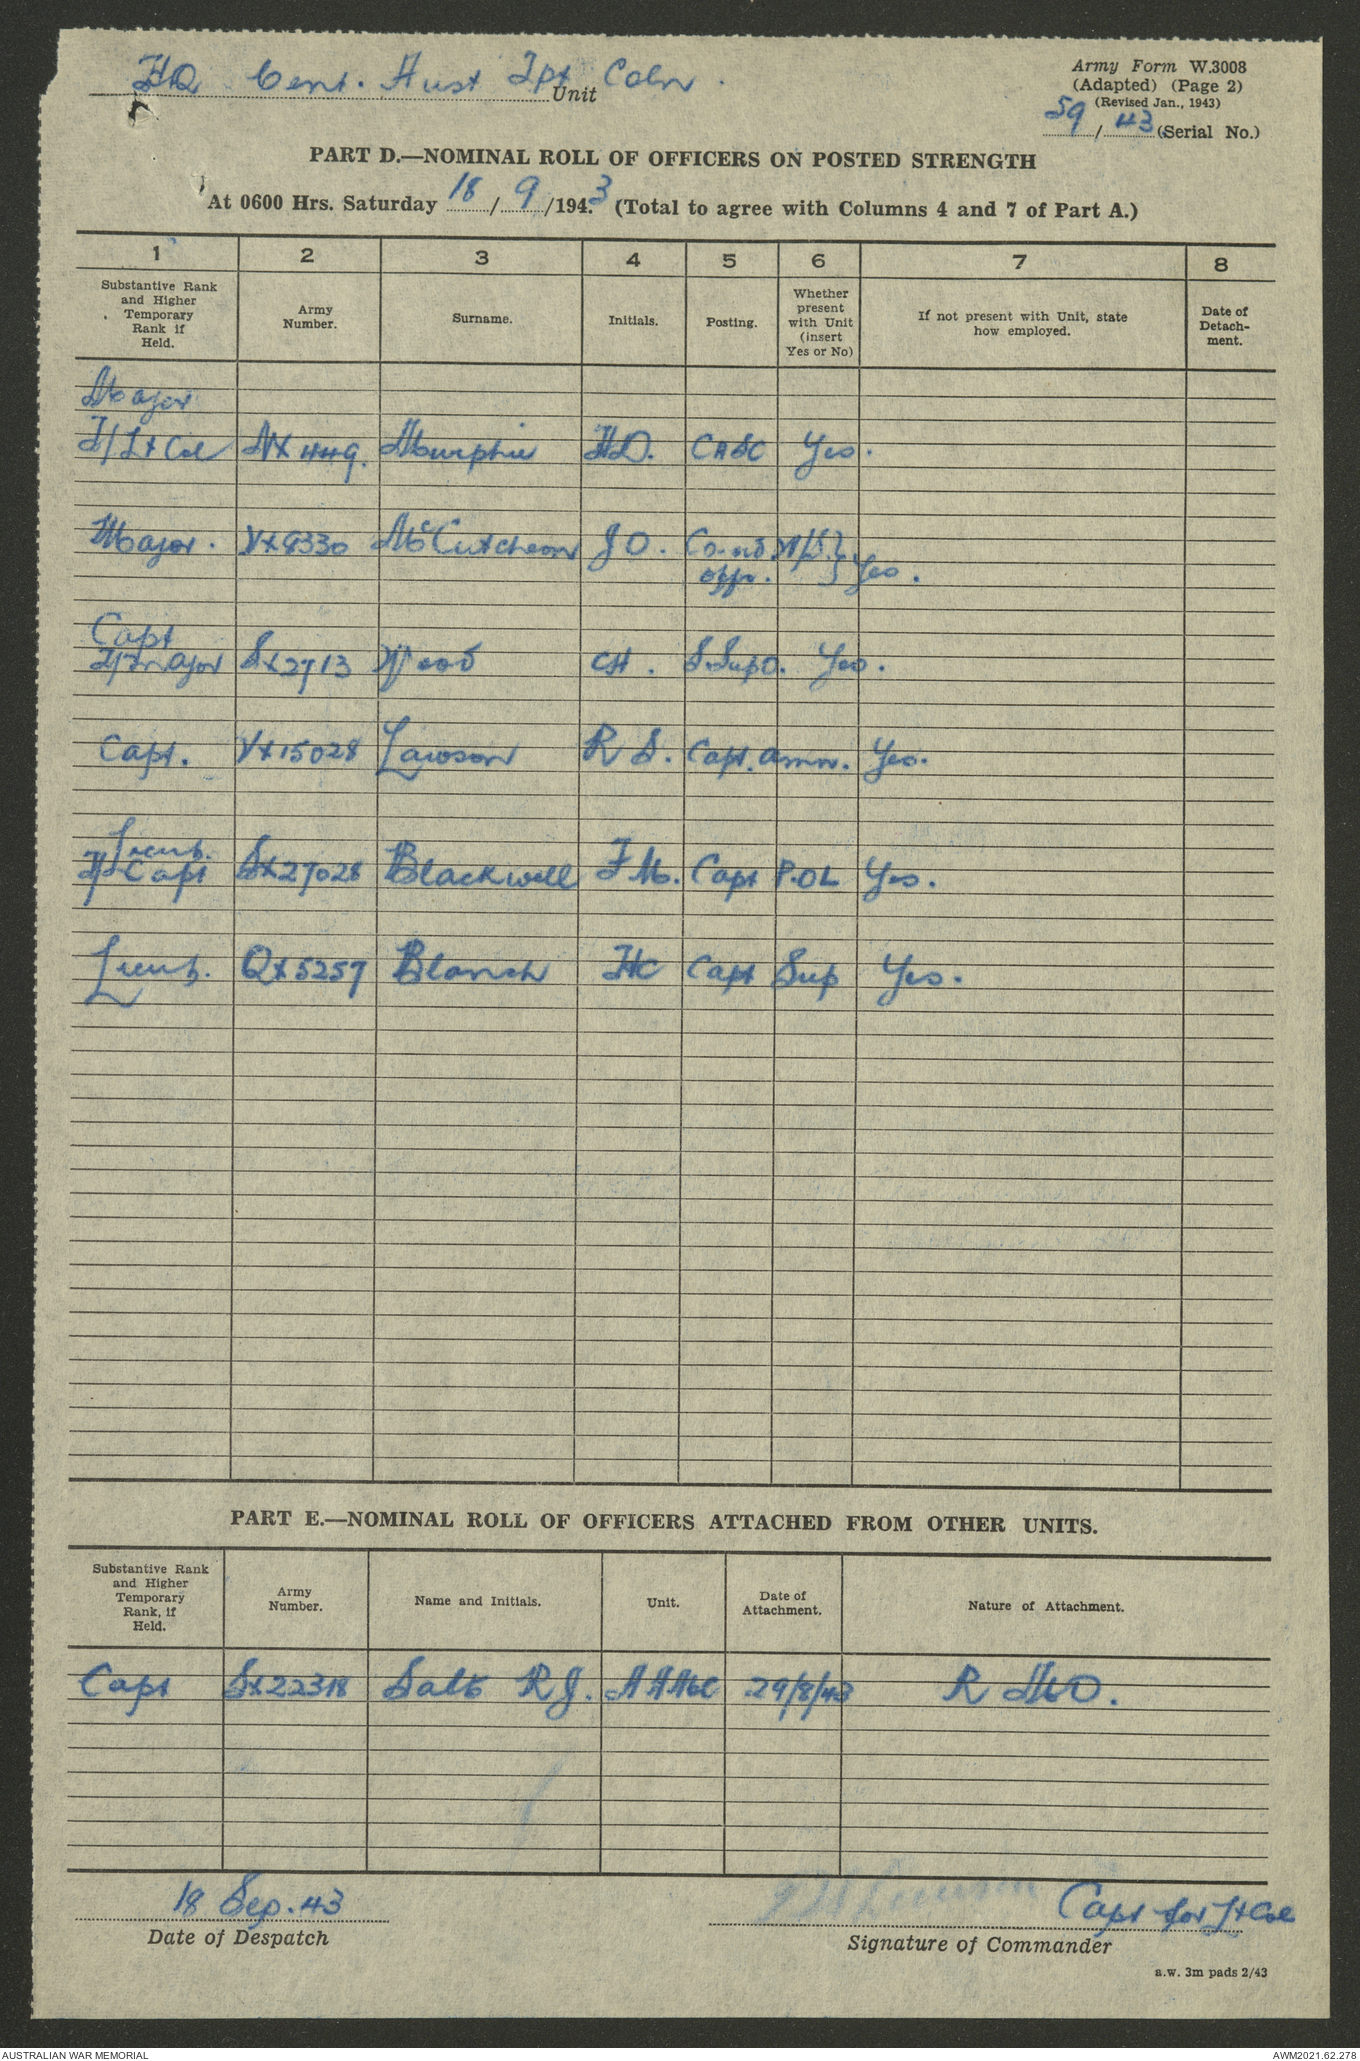 HQ Cent. Aust Tpt Coln.
Unit
Army Form W.3008
(Adapted) (Page 2)
(Revised Jan., 1943)
59/43 (Serial No.)
PART D.—NOMINAL ROLL OF OFFICERS ON POSTED STRENGTH
At 0600 Hrs. Saturday 18/9/1943 (Total to agree with Columns 4 and 7 of Part A.)
1 2 3 4 5 6 7 8
Substantive Rank and Higher Temporary Rank if Held. Army Number. Surname. Initials. Posting. Whether present with Unit (insert Yes or No) If not present with Unit, state how employed. Date of Detach-ment.
Major
T/Lt Col NX449. Murphie HD. CASC Yes.
Major. VX8330 McCutcheon JO. Co-ord M/S.} Yes.
offr.
Capt
T/Major SX2713 Wood CH. S.SupO. Yes.
Capt. VX15028 Lawson R S. Capt. Amn. Yes.
Lieut.
T/Capt SX27028 Blackwell FM. Capt P.O.L Yes.
Lieut. QX5257 Blanch HC Capt Sup Yes.
PART E.—NOMINAL ROLL OF OFFICERS ATTACHED FROM OTHER UNITS.
Substantive Rank and Higher Temporary Rank, if Held. Army Number. Name and Initials. Unit. Date of Attachment. Nature of Attachment.
Capt SX22318 Salts RJ. AAMC 29/8/43 R MO.
18 Sep. 43
Capt for Lt Col
Date of Despatch
Signature of Commander
a.w. 3m pads 2/43
AUSTRALIAN WAR MEMORIAL
AWM2021.62.278